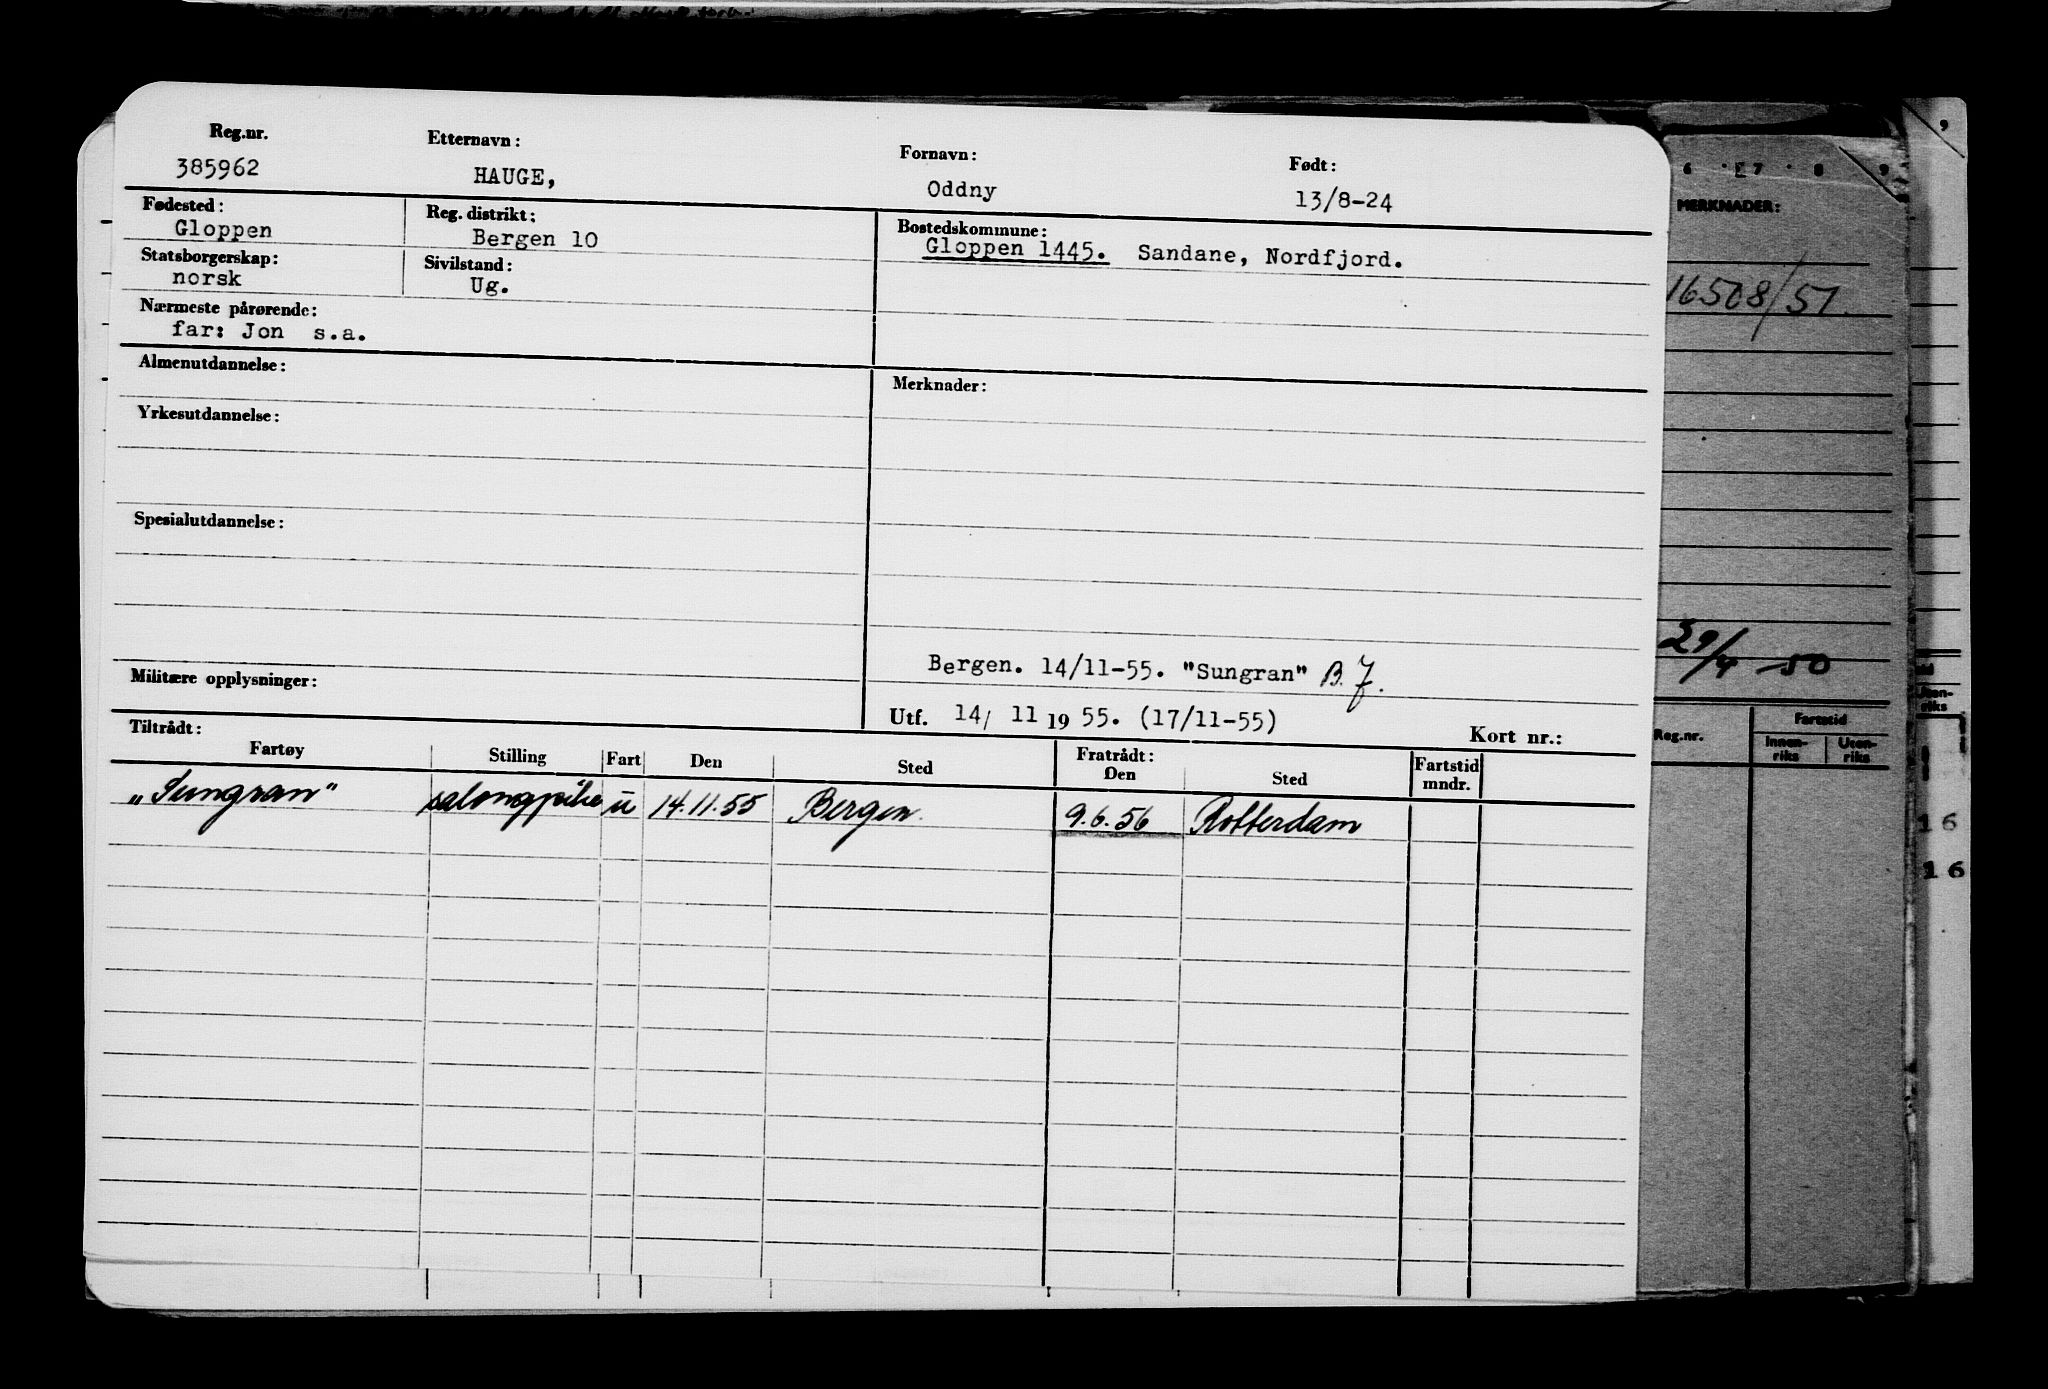 Reg.nr. Etternavn: Fornavn: Født:
385962 HAUGE, Oddny 13/8-24
Fødested: Reg. distrikt: Bostedskommune:
Gloppen Bergen 10 Gloppen 1445. Sandane, Nordfjord.
Statsborgerskap: Sivilstand:
norsk Ug.
Nærmeste pårørende:
far: Jon s.a.
Almenutdannelse: Merknader:
Yrkesutdannelse:
Spesialutdannelse:
Bergen. 14/11-55. "Sungran" B.J.
Militære opplysninger:
Utf. 14/ 11 19 55. (17/11-55) Kort nr.:
Tiltrådt: Fratrådt:
Fartøy Stilling Fart Den Sted Den Sted Fartstid mndr.
„Sungran" salongpike u 14.11.55 Bergen. 9.6.56 Rotterdam
9
6 7 8 9
MERKNADER:
16508/51.
29/4-50
Reg.nr. Fartstid
Innen-riks Uten-riks
Uten-riks
16
16